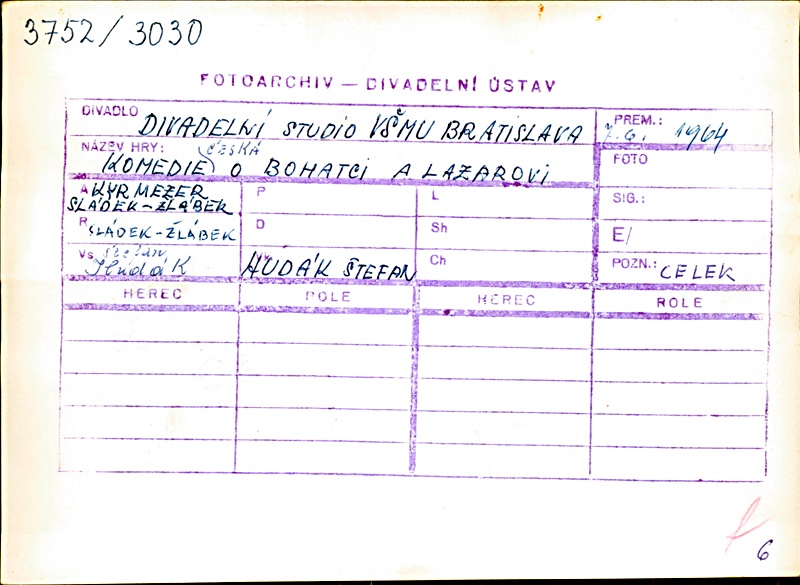 3752/3030
FOTOARCHIV — DIVADELNÍ ÚSTAV
DIVADLO DIVADELNÍ STUDIO VŠMU BRATISLAVA
PREM.: 7.6. 1964
NÁZEV HRY: (ČESKÁ
KOMEDIE) O BOHATCI A LAZAROVI
FOTO
A KYRMEZER
SLÁDEK-ŽLÁBEK
P
L
SIG.:
R SLÁDEK-ŽLÁBEK
D
Sh
E/
Vs Štefan
Hudák
HUDÁK ŠTEFAN
Ch
POZN.: CELEK
HEREC ROLE HEREC ROLE
6